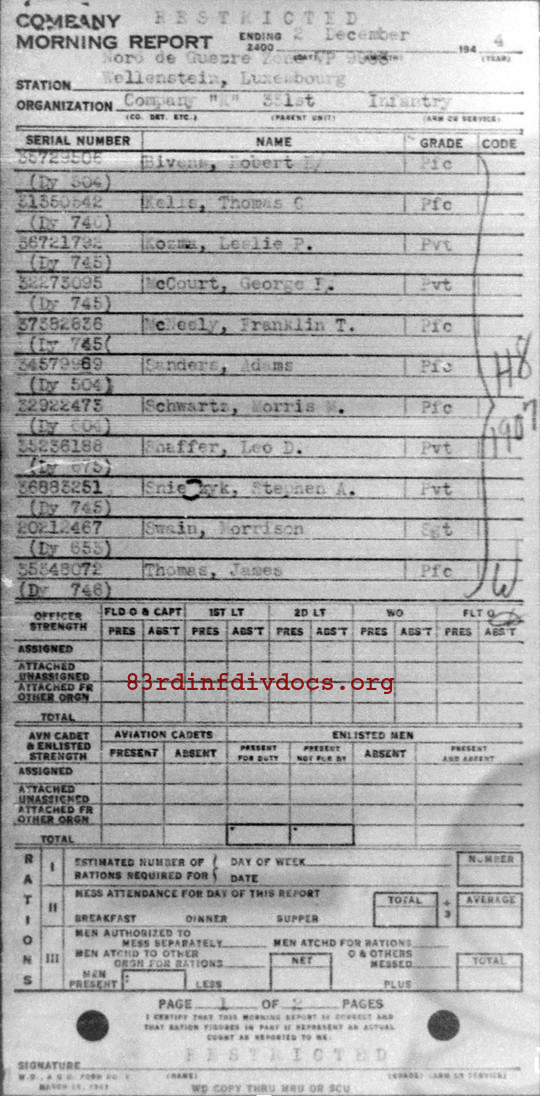 RESTRICTED
COMPANY
MORNING REPORT ENDING 2400 2 December 194 4
(DAY) (MONTH) (YEAR)
Nord de Guerre Zone
STATION Wellenstein, Luxembourg
ORGANIZATION Company 331st Infantry
(CO. DET. ETC.) (PARENT UNIT) (ARM OR SERVICE)
SERIAL NUMBER NAME GRADE CODE
35729506 Bivens, Robert Pfc
(Dy 504)
31350542 Kells, Thomas C Pfc
(Dy 746)
36721792 Kozma, Leslie P. Pvt
(Dy 745)
32273095 McCourt, George Pvt
(Dy 745)
37382636 McNeely, Franklin T. Pfc
(Dy 745(
34579969 Sanders, Adams Pfc
(Dy 504)
32922473 Schwartz, Morris M. Pfc
(Dy 604)
35236188 Shaffer, Leo D. Pvt
(Dy 675)
36883251 Stephen A. Pvt
(Dy 745)
20212467 Swain, Morrison Sgt
(Dy 653)
35548072 Thomas, James Pfc
(Dy 746)
H8
1907
W
OFFICER STRENGTH FLD O & CAPT 1ST LT 2D LT WO FLT O
PRES ABS'T PRES ABS'T PRES ABS'T PRES ABS'T PRES ABS'T
ASSIGNED
ATTACHED UNASSIGNED
ATTACHED FR OTHER ORGN
TOTAL
83rdinfdivdocs.org
AVN CADET & ENLISTED STRENGTH AVIATION CADETS ENLISTED MEN
PRESENT ABSENT PRESENT FOR DUTY PRESENT NOT FOR DY ABSENT PRESENT AND ABSENT
ASSIGNED
ATTACHED UNASSIGNED
ATTACHED FR OTHER ORGN
TOTAL
RATIONS
I ESTIMATED NUMBER OF RATIONS REQUIRED FOR DAY OF WEEK DATE NUMBER
II MESS ATTENDANCE FOR DAY OF THIS REPORT TOTAL ÷ 3 AVERAGE
BREAKFAST DINNER SUPPER
III MEN AUTHORIZED TO MESS SEPARATELY MEN ATCHD FOR RATIONS
MEN ATCHD TO OTHER ORGN FOR RATIONS NET O & OTHERS MESSED TOTAL
MEN PRESENT LESS PLUS
PAGE 1 OF 2 PAGES
I CERTIFY THAT THIS MORNING REPORT IS CORRECT AND
THAT RATION FIGURES IN PART II REPRESENT AN ACTUAL
COUNT AS REPORTED TO ME.
RESTRICTED
SIGNATURE
(NAME) (GRADE) (ARM OR SERVICE)
W.D., A.G.O. FORM NO. 1
MARCH
WD COPY THRU MRU OR SCU